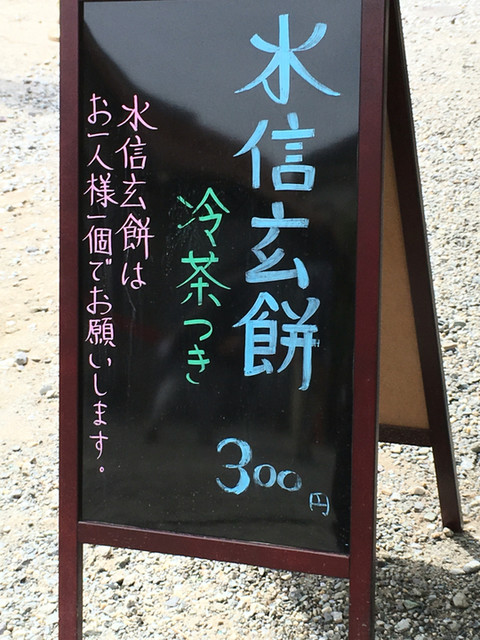 水信玄餅
冷茶つき
300円
水信玄餅は
お一人様一個でお願いします。